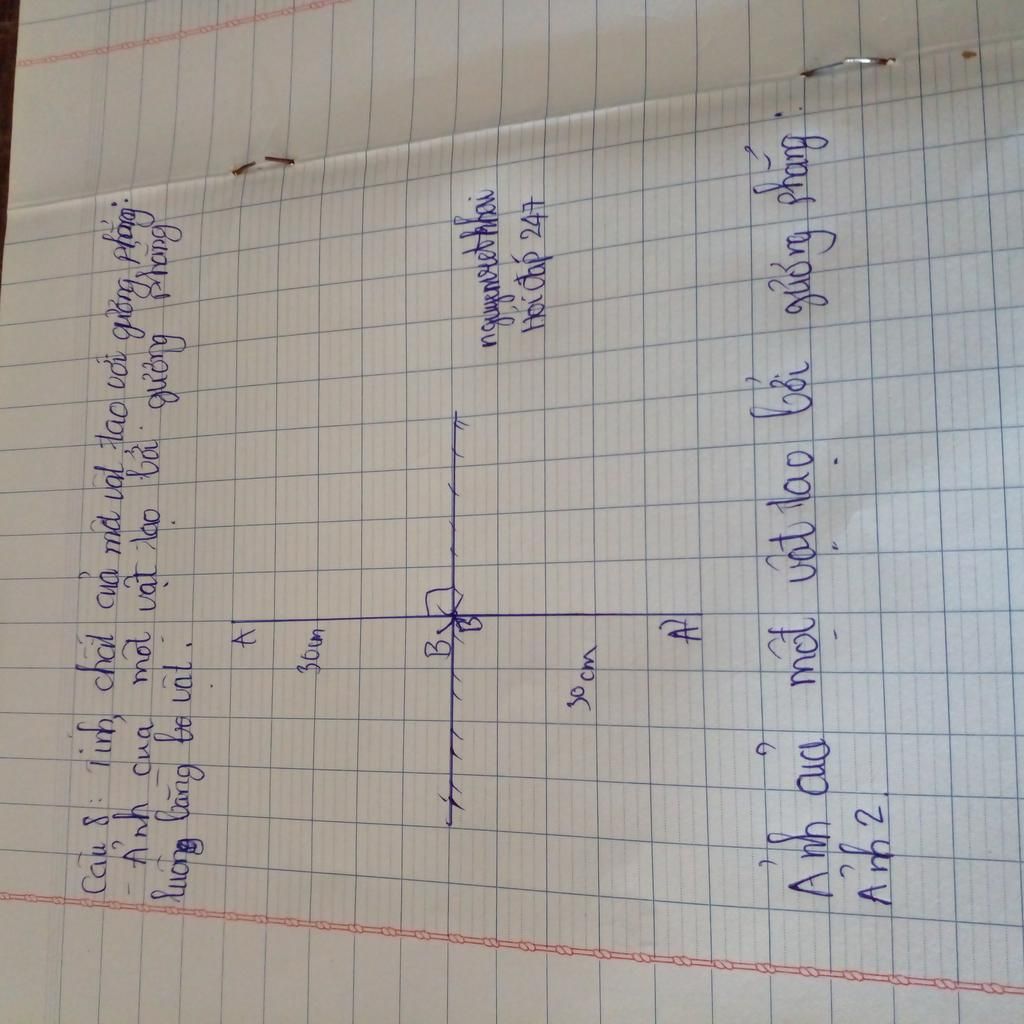 Câu 8: Tính chất của một vật tạo với gương phẳng:
- Ảnh của một vật tạo bởi gương phẳng
luông bằng vật.
A
30cm
B
B'
30cm
A'
nguyenvietkhai
Hỏi đáp 247
Ảnh của một vật tạo bởi gương phẳng.
Ảnh 2.